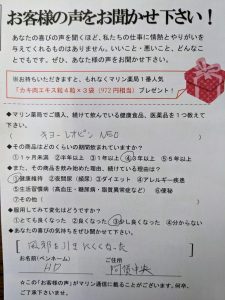 お客様の声をお聞かせ下さい！
あなたの喜びの声を聞くほど、私たちの仕事に情熱とやりがいを
与えてくれるものはありません。いいこと・悪いこと、どんなこ
とでもです。ぜひ、あなた様の声をお聞かせ下さい。
※お持ちいただきますと、もれなくマリン薬局1番人気
「カキ肉エキス粒4粒×3袋（972円相当）プレゼント！
◆マリン薬局でご購入、続けて飲んでいる健康食品、医薬品を1つ教えて
下さい。
（キヨーレオピン NEO）
◆その商品はどのくらいの期間飲まれていますか？
①1ヶ月未満 ②半年以上 ③1年以上 ④3年以上 ⑤5年以上
◆また、その商品を飲み始めた理由、続けている理由は？
①健康維持 ②夜間頻（頻尿） ③ダイエット ④アレルギー疾患
⑤生活習慣病（高血圧・糖尿病・脂質異常症など） ⑥便秘
⑦その他（ ）
◆服用してみて変化はどうですか？
①とても良くなった ②良くなった ③少し良くなった ④分からない
◆あなたの喜びの気持ちをぜひ聞かせて下さい。
風邪を引きにくくなった
お名前(ペンネーム) ご住所
HD 阿賀中央
☆この「お客様の声」がマリン通信に載ることがございます。何卒、
ご了承下さいませ。